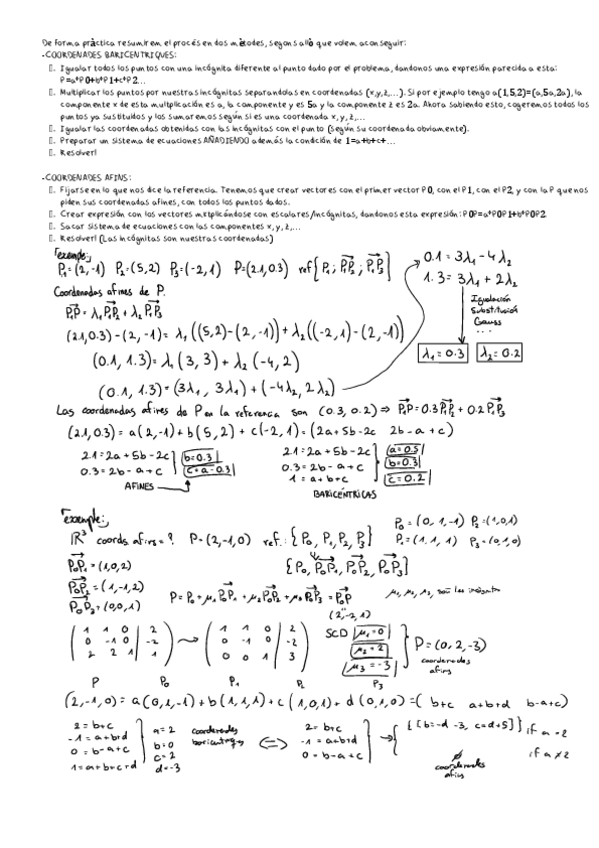 De forma pràctica resumirem el procés en dos mètodes, segons allò que volem aconseguir:
-COORDENADES BARICÈNTRIQUES:
Igualar todos los puntos con una incógnita diferente al punto dado por el problema, dandonos una expresión parecida a esta: P=a*P0+b*P1+c*P2...
Multiplicar los puntos por nuestras incógnitas separandola en coordenadas (x,y,z,...). Si por ejemplo tengo a(1,5,2)=(a,5a,2a), la
componente x de esta multiplicación es a, la componente y es 5a y la componente z es 2a. Ahora sabiendo esto, cogeremos todos los
puntos ya sustituidos y los sumaremos según si es una coordenada x, y, z,...
Igualar las coordenadas obtenidas con las incógnitas con el punto (según su coordenada obviamente).
Preparar un sistema de ecuaciones AÑADIENDO además la condición de 1=a+b+c+...
Resolver!
-COORDENADES AFINS:
Fijarse en lo que nos dice la referencia. Tenemos que crear vectores con el primer vector P0, con el P1, con el P2, y con la P que nos
piden sus coordenadas afines, con todos los puntos dados.
Crear expresión con los vectores multiplicándose con escalares/incógnitas, dandonos esta expresión: P0P=a*P0P1+b*P0P2
Sacar sistema de ecuaciones con las componentes x, y, z,...
Resolver! (Las incógnitas son nuestras coordenadas)
P₁=(2,-1) P₂=(5,2) P₃=(-2,1) P=(2.1,0.3) ref {P₁; P₁P₂; P₁P₃}
0.1 = 3λ₁ - 4λ₂
1.3 = 3λ₁ + 2λ₂
Coordenadas afines de P.
P₁P = λ₁P₁P₂ + λ₂P₁P₃
Igualación
Substitución
Gauss
...
(2.1,0.3)-(2,-1)=λ₁((5,2)-(2,-1))+λ₂((-2,1)-(2,-1))
(0.1, 1.3)=λ₁(3,3)+λ₂(-4,2)
λ₁=0.3 λ₂=0.2
(0.1, 1.3)=(3λ₁, 3λ₁)+(-4λ₂, 2λ₂)
Las coordenadas afines de P en la referencia son (0.3, 0.2) ⇒ P₁P=0.3P₁P₂+0.2P₁P₃
(2.1,0.3)=a(2,-1)+b(5,2)+c(-2,1)=(2a+5b-2c 2b-a+c)
2.1=2a+5b-2c b=0.3
0.3=2b-a+c c=a-0.3
AFINES
2.1=2a+5b-2c a=0.5
0.3=2b-a+c b=0.3
1=a+b+c c=0.2
BARICÉNTRICAS
Exemple:
ℝ³ coords afins=? P=(2,-1,0) ref.: {P₀, P₁, P₂, P₃}
P₀=(0,1,-1) P₂=(1,0,1)
P₁=(1,1,1) P₃=(0,1,0)
{P₀, P₀P₁, P₀P₂, P₀P₃}
P₀P₁=(1,0,2)
P₀P₂=(1,-1,2)
P₀P₃=(0,0,1)
P=P₀+μ₁P₀P₁+μ₂P₀P₂+μ₃P₀P₃=P₀P
μ₁, μ₂, μ₃, son les
(2,-2,1)
1 1 0 2
0 -1 0 -2
2 2 1 1
1 1 0 2
0 -1 0 -2
0 0 1 3
SCD μ₁=0
μ₂=2
μ₃=-3
P=(0,2,-3)
coordenades
afins
P P₀ P₁ P₂ P₃
(2,-1,0)=a(0,1,-1)+b(1,1,1)+c(1,0,1)+d(0,1,0)=(b+c a+b+d b-a+c)
2=b+c
-1=a+b+d
0=b-a+c
1=a+b+c+d
a=2
b=0
c=2
d=-3
coordenades
⇔
2=b+c
-1=a+b+d
0=b-a+c
{[b=-d-3, c=d+5]} if a=2
∅ if a≠2
coordenades
afins